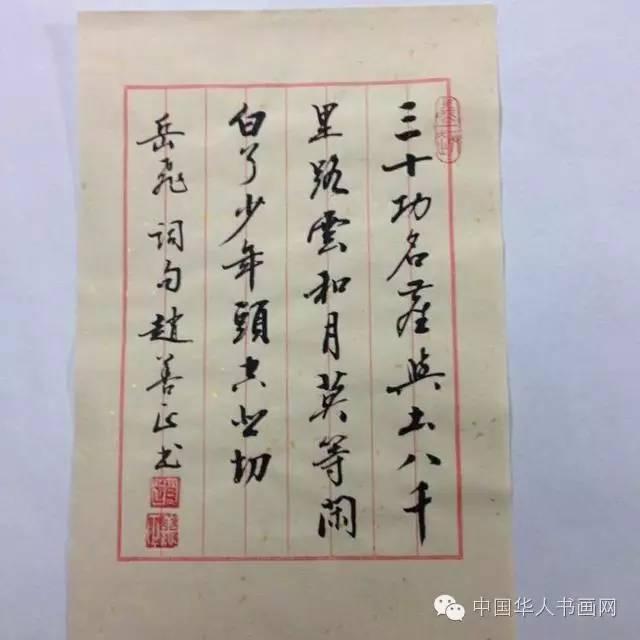 三十功名塵與土八千
里路雲和月莫等閑
白了少年頭空悲切
岳飛詞句趙善山书
中国华人书画网